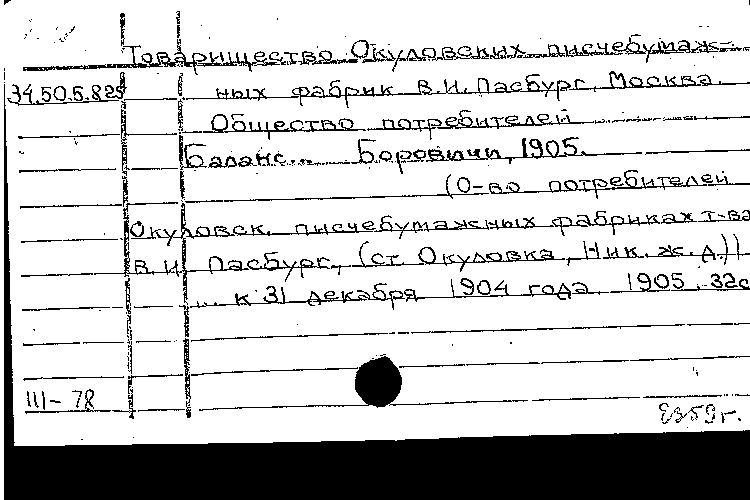 Товарищество Окуловских писчебумаж-
34.50.5.829 ных фабрик В.И. Пасбург, Москва.
Общество потребителей
Баланс... Боровичи, 1905.
(О-во потребителей
Окуловск. писчебумажных фабриках т-ва
В.И. Пасбург, (ст. Окуловка, Ник. ж. д.))
... к 31 декабря 1904 года. 1905. 32с
III-78